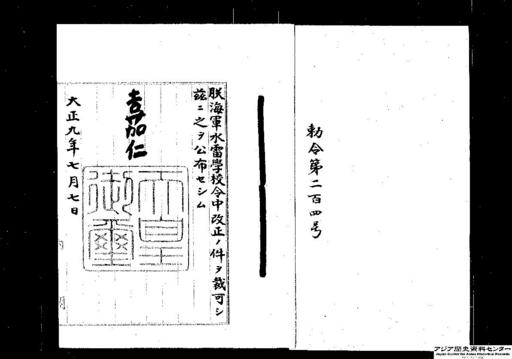 勅令第二百四号
朕海軍水雷學校令中改正ノ件ヲ裁可シ
茲ニ之ヲ公布セシム
嘉仁
天皇
御璽
大正九年七月七日
アジア歴史資料センター
Japan Center for Asian Historical Records